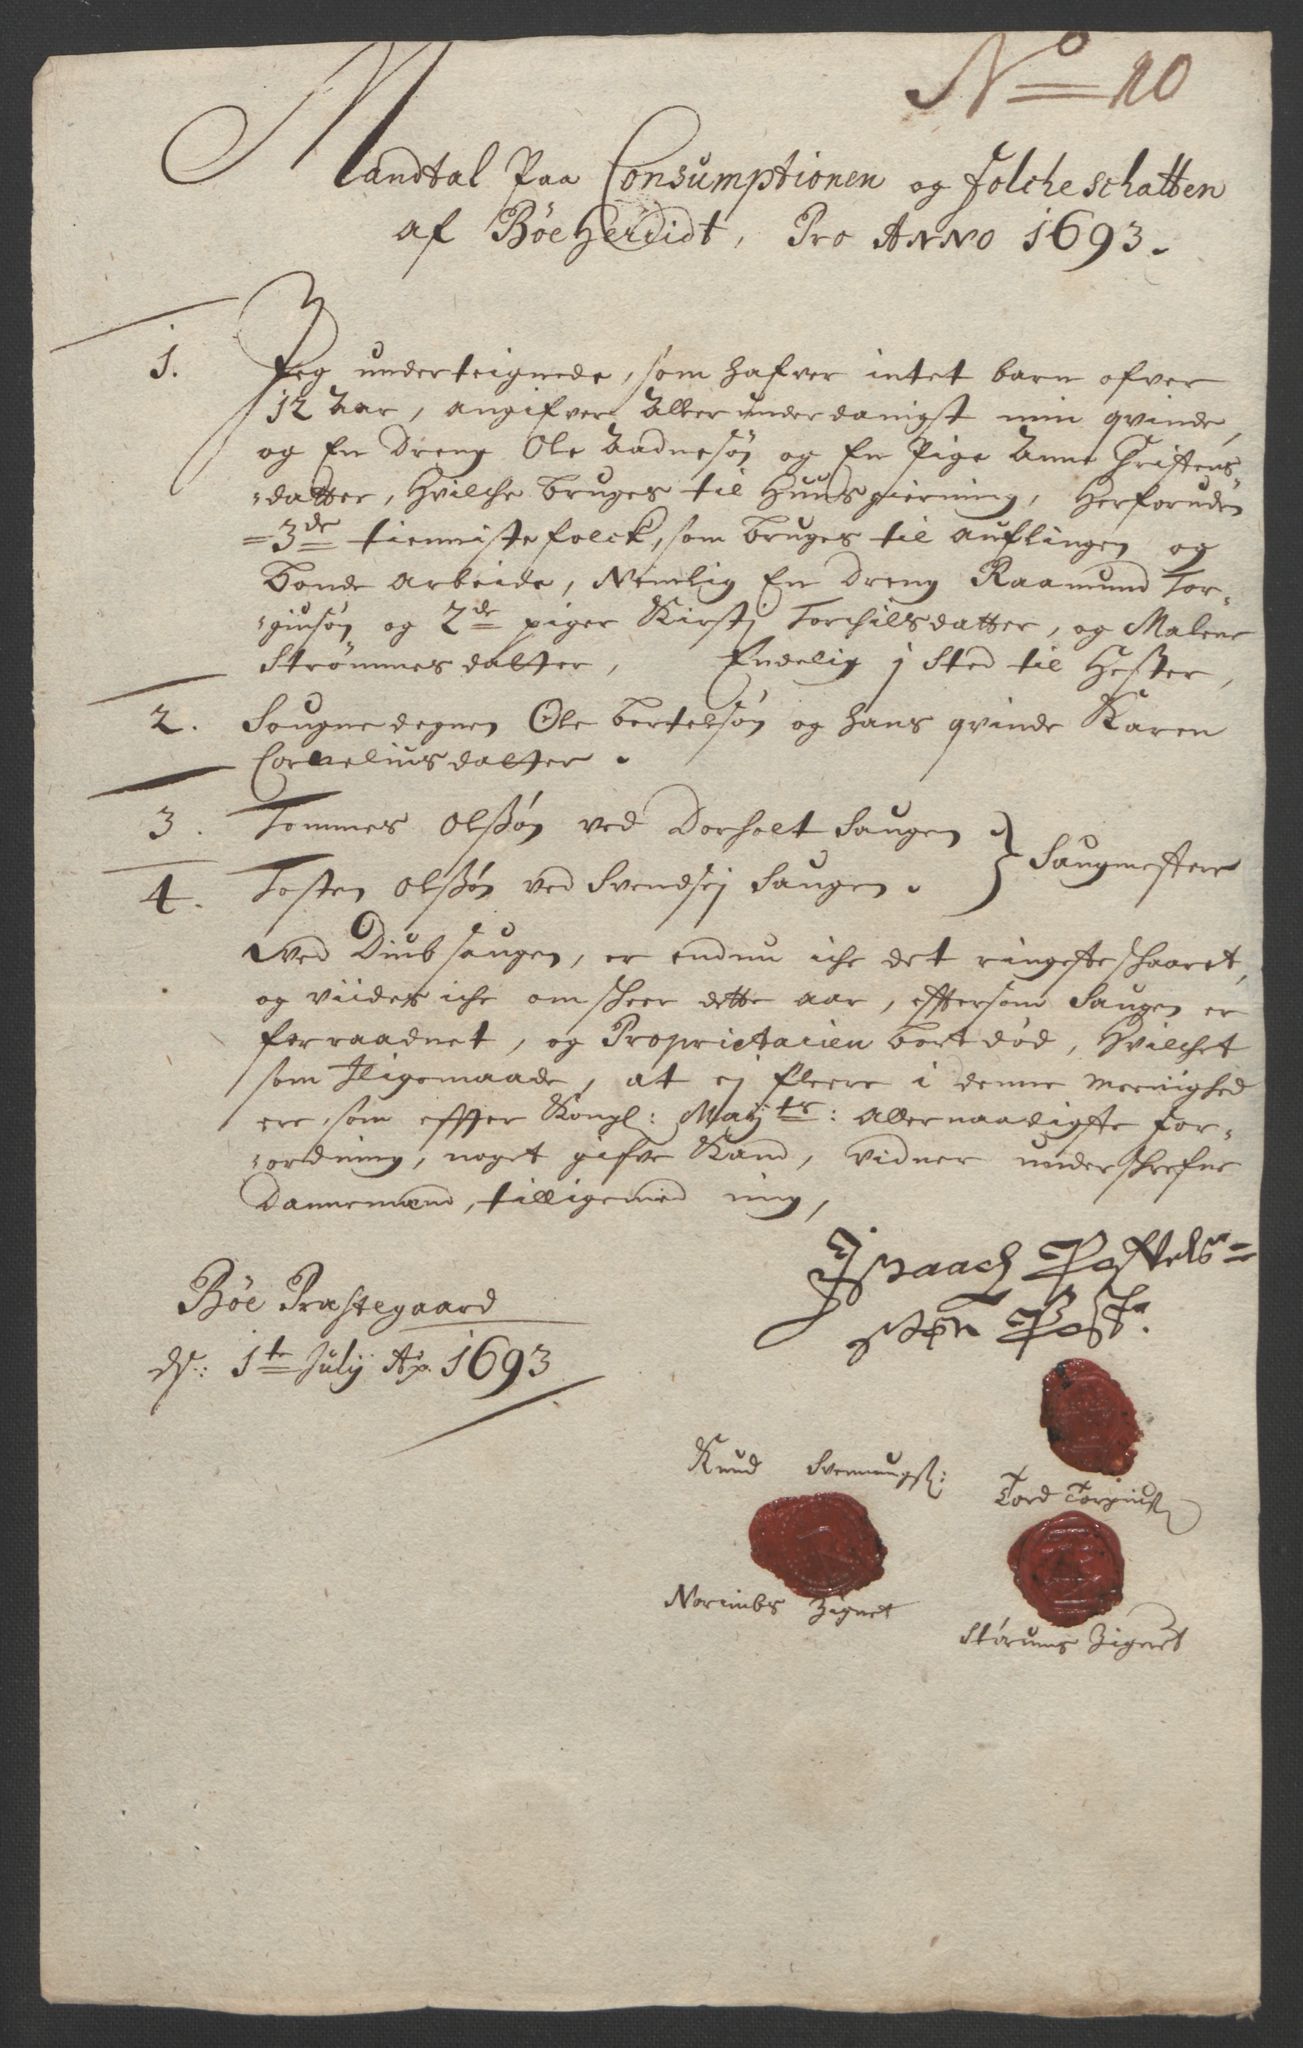 No 10
Mandtal Paa Consumptionen og Folcheschatten
af Bøe Herridt, Pro Anno 1693.
1. Jeg underteignede, som hafver intet barn ofver
12 Aar, angifver Allerunderdanigst min qvinde,
og En Dreng Ole Aadnesøn og En Pige Anne Christens-
datter, Hvilche bruges til Huusgierning, Herforuden
3de tienniste folck, som bruges til auflingen og
bonde arbeide, Nemlig En Dreng Raamund Tor-
giusøn og 2de piger Kirstj Torchilsdatter, og Malene
Strømmesdatter, Endelig j Sted til Hester,
2. Sougnedegnen Ole Bertelsøn og hans qvinde Karen
Corneliusdatter.
3. Tommes Olsøn ved Dorholt Saugen
4. Tosten Olsøn ved Svendsej Saugen. } Saugmestere
Ved Diubsaugen, er endnu iche det ringeste schaaret,
og viides iche om scheer dette aar, efftersom Saugen er
forraadnet, og Proprietarien bort død, Hvilchet
som Iligemaade, at ej fleere i denne meenighed
ere som effter Kongl: Mayts: allernaadigste for-
ordning, noget gifve Kand, vidner underschrefne
Dannemænd, tilligemed mig,
Isaach Poffvels-
søn Post
Bøe Præstegaard
ds: 1te July Ao 1693
Knud Svennungs: Tord Torgius
Norimbs Zignet
Størums Zignet